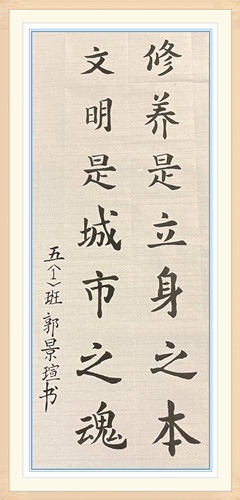 修养是立身之本
文明是城市之魂
五〈1〉班 郭景瑄书